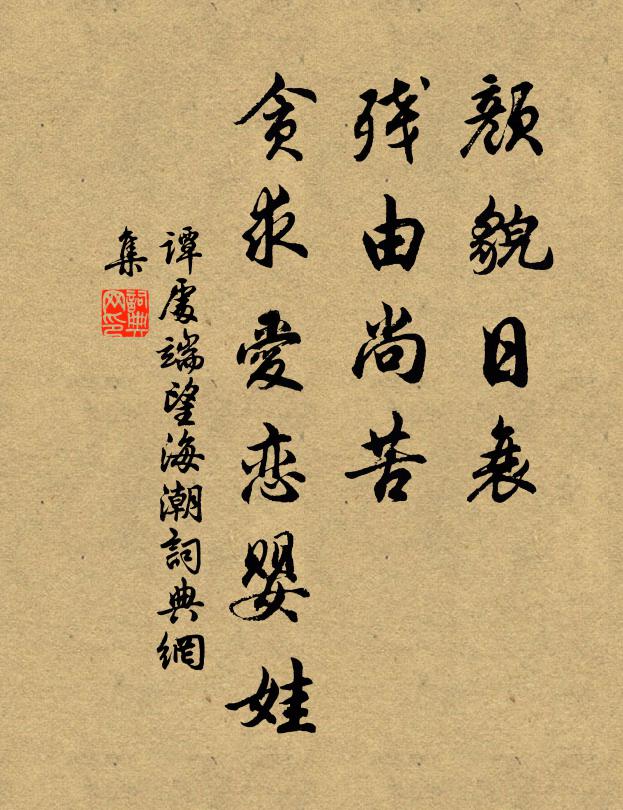 颜貌日衰
残由尚苦
贪求爱恋婴娃
谭处端望海潮词典網
集
詞典网印